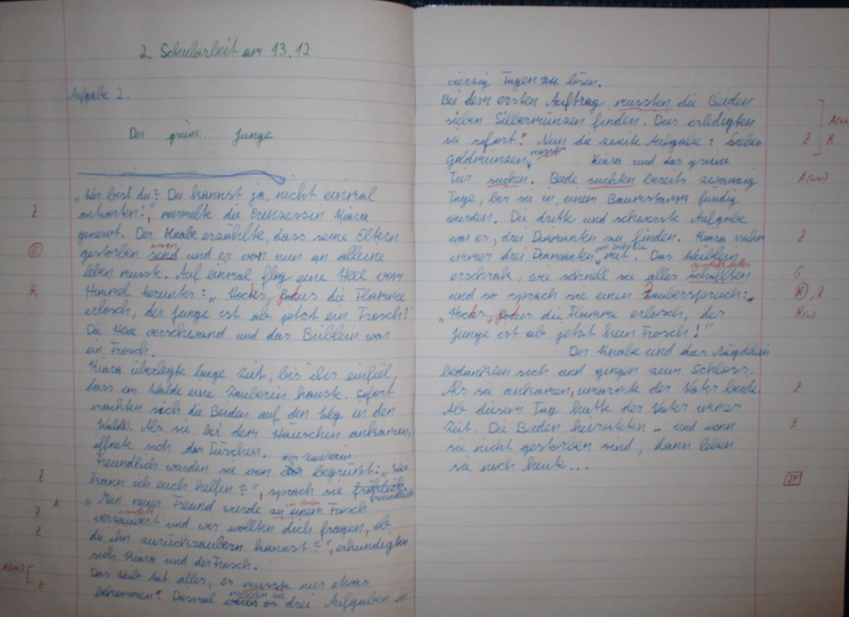 2. Schularbeit am 13.12
Aufgabe 2.
Der grüne Junge
"Wer bist du? Du kannst ja nicht einmal
antworten!", murmelte die Prinzessin Kiara
genervt. Der Knabe erzählte, dass seine Eltern
gestorben sind waren und er von nun an alleine
leben musste. Auf einmal flog eine Hexe vom
Himmel herunter: "Hockus, pockus die Flamme
erlosch, der Junge ist ab jetzt ein Frosch!"
Die Hexe verschwand und das Büblein war
ein Frosch.
Kiara überlegte lange Zeit, bis ihr einfiel,
dass im Walde eine Zauberin hauste. Sofort
machten sich die Beiden auf den Weg in den
Wald. Als sie bei dem Häuschen ankamen,
öffnete sich das Türchen.
Freundlich wurden sie von der Zauberin begrüßt: "Wie
kann ich euch helfen?", sprach sie fröhlich. freundlich
"Mein neuer Freund wurde zu einem Frosch
verzaubert und wir wollten dich fragen, ob
du ihn zurückzaubern kannst?", erkundigten
sich Kiara und der Frosch.
Das Weib tat alles, es musste nur etwas
bekommen. Diesmal mussten sie drei Aufgaben in
vierzig Tagen zu lösen.
Bei dem ersten Auftrag mussten die Beiden
sieben Silbermünzen finden. Dies erledigten
sie sofort. Nun die zweite Aufgabe: Sieben
Goldmünzen musste Kiara und das grüne
Tier suchen. Beide suchten bereits zwanzig
Tage, bis sie in einem Baumstamm fündig
wurden. Die dritte und schwerste Aufgabe
war es, drei Diamanten zu finden. Kiara nahm
immer drei Diamanten mit. Das Weiblein
erschrak, wie schnell sie alles schafften
und so sprach sie einen Zauberspruch:
"Hockus, pockus die Flamme erlosch, der
Junge ist ab jetzt kein Frosch!"
Der Knabe und das Mägdlein
bedankten sich und gingen zum Schloss.
Als sie ankamen, umarmte der Vater beide.
Ab diesem Tag hatte der Vater immer
Zeit. Die Beiden heirateten und wenn
sie nicht gestorben sind, dann leben
sie noch heute...